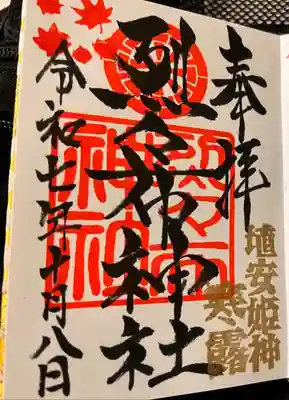 奉拝
埴安姫神
寒露
烈々布神社
令和七年十月八日